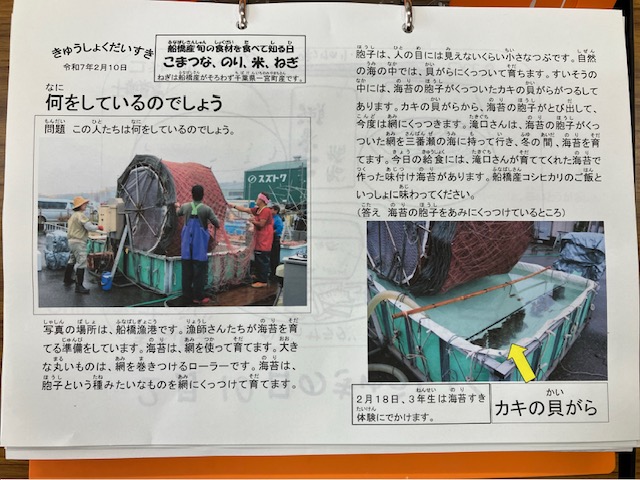 きゅうしょくだいすき
令和7年2月10日
船橋産旬の食材を食べて知る日
こまつな、のり、米、ねぎ
ねぎは船橋産がそろわず千葉県一宮町産です。
何をしているのでしょう
問題 この人たちは何をしているのでしょう。
スズトク
写真の場所は、船橋漁港です。漁師さんたちが海苔を育
てる準備をしています。海苔は、網を使って育てます。大き
な丸いものは、網を巻きつけるローラーです。海苔は、
胞子という種みたいなものを網にくっつけて育てます。
胞子は、人の目には見えないくらい小さなつぶです。自然
の海の中では、貝がらにくっついて育ちます。すいそうの
中には、海苔の胞子がくっついたカキの貝がらがつるして
あります。カキの貝がらから、海苔の胞子がとび出して、
今度は網にくっつきます。滝口さんは、海苔の胞子がくっ
ついた網を三番瀬の海に持って行き、冬の間、海苔を育
てます。今日の給食には、滝口さんが育ててくれた海苔で
作った味付け海苔があります。船橋産コシヒカリのご飯と
いっしょに味わってください。
(答え 海苔の胞子をあみにくっつけているところ)
2月18日、3年生は海苔すき
体験にでかけます。
カキの貝がら